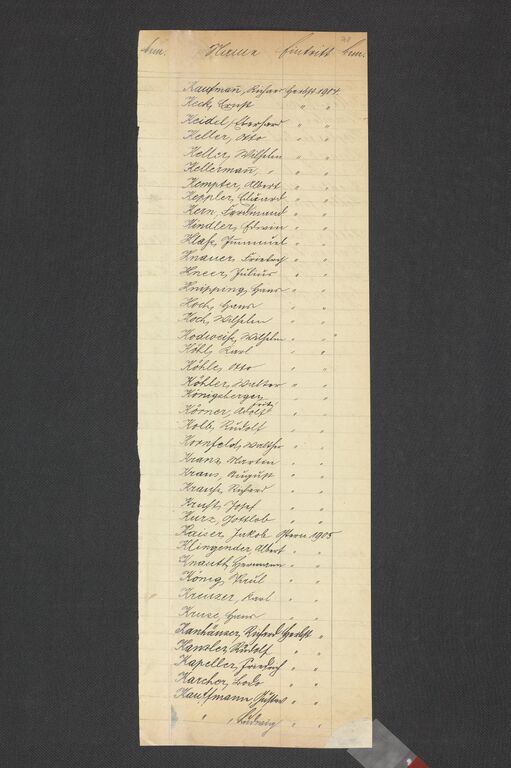 Num. Name Eintritt Num.
Kaufmañ, Richard Herbst 1904.
Keck, Ernst " "
Keidel, Eberhard " "
Keller, Otto " "
Keller, Wilhelm " "
Kellermañ, " " "
Kempter, Albert " "
Keppler, Eduard " "
Kern, Ferdinand " "
Kindler, Erwin " "
Klass, " "
Knauer, Friedrich " "
Kneer, Julius " "
Knipping, Hans " "
Koch, Hans " "
Koch, Wilhelm " "
Kodweiß, Wilhelm " "
Köhl, Karl " "
Köhle, Otto " "
Köhler, Walter " "
Königsberger, Fritz
Körner, Adolf " "
Kolb, Rudolf " "
Kornfeld, Walther " "
Kranz, Martin " "
Kraus, August " "
Krauß, Richard " "
Kraft, Josef " "
Kurz, Gottlob " "
Kaiser, Jakob Ostern 1905
Klingender, Albert " "
Knauth, Hermann " "
König, Paul " "
Kreuzer, Karl " "
Kruse, Hans " "
Kanhäuser, Richard Herbst "
Kanzler, Rudolf " "
Kapeller, Friedrich " "
Karcher, Bodo " "
Kauffmann, Gustav " "
" , Ludwig " "